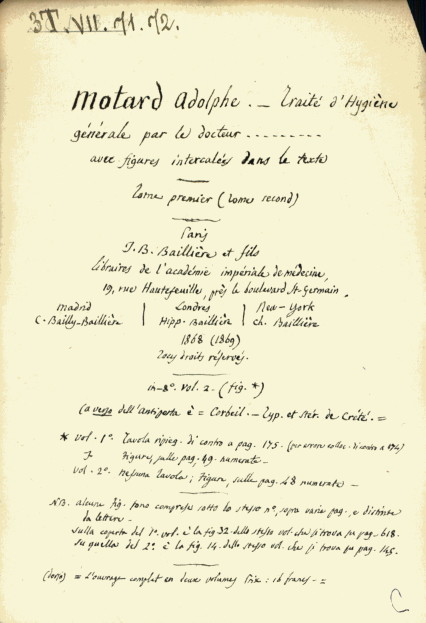 3T. VII. 71. 72.
Motard Adolphe. — Traité d'Hygiène
générale par le docteur ---------
avec figures intercalées dans le texte
Tome premier (Tome second)
Paris
J. B. Baillière et fils
libraires de l'académie impériale de médecine,
19, rue Hautefeuille, près le boulevard St-Germain.
Madrid | Londres | New-York
C. Bailly-Baillière | Hipp. Baillière | Ch. Baillière
1868 (1869)
Tous droits réservés.
in-8°. vol. 2. (fig. *)
(a verso dell'Antiporta è = Corbeil. — Typ. et Stér. de Crété. =
* vol. 1°. Tavola ripieg. di contro a pag. 175. (per errore colloc. di contro a 174)
Figure, sulle pag. 49 numerate —
vol. 2°. Nessuna Tavola; Figure, sulle pag. 48 numerate —
NB. alcune fig. sono comprese sotto lo stesso n°, sopra varie pag. e distinte
da lettere.
Sulla coperta del 1°. vol. è la fig 32. dello stesso vol. che si trova su pag. 618.
Su quella del 2°. è la fig. 14. dello stesso vol. che si trova su pag. 145.
(dorso) = L'ouvrage complet en deux volumes Prix : 16 francs. =
C